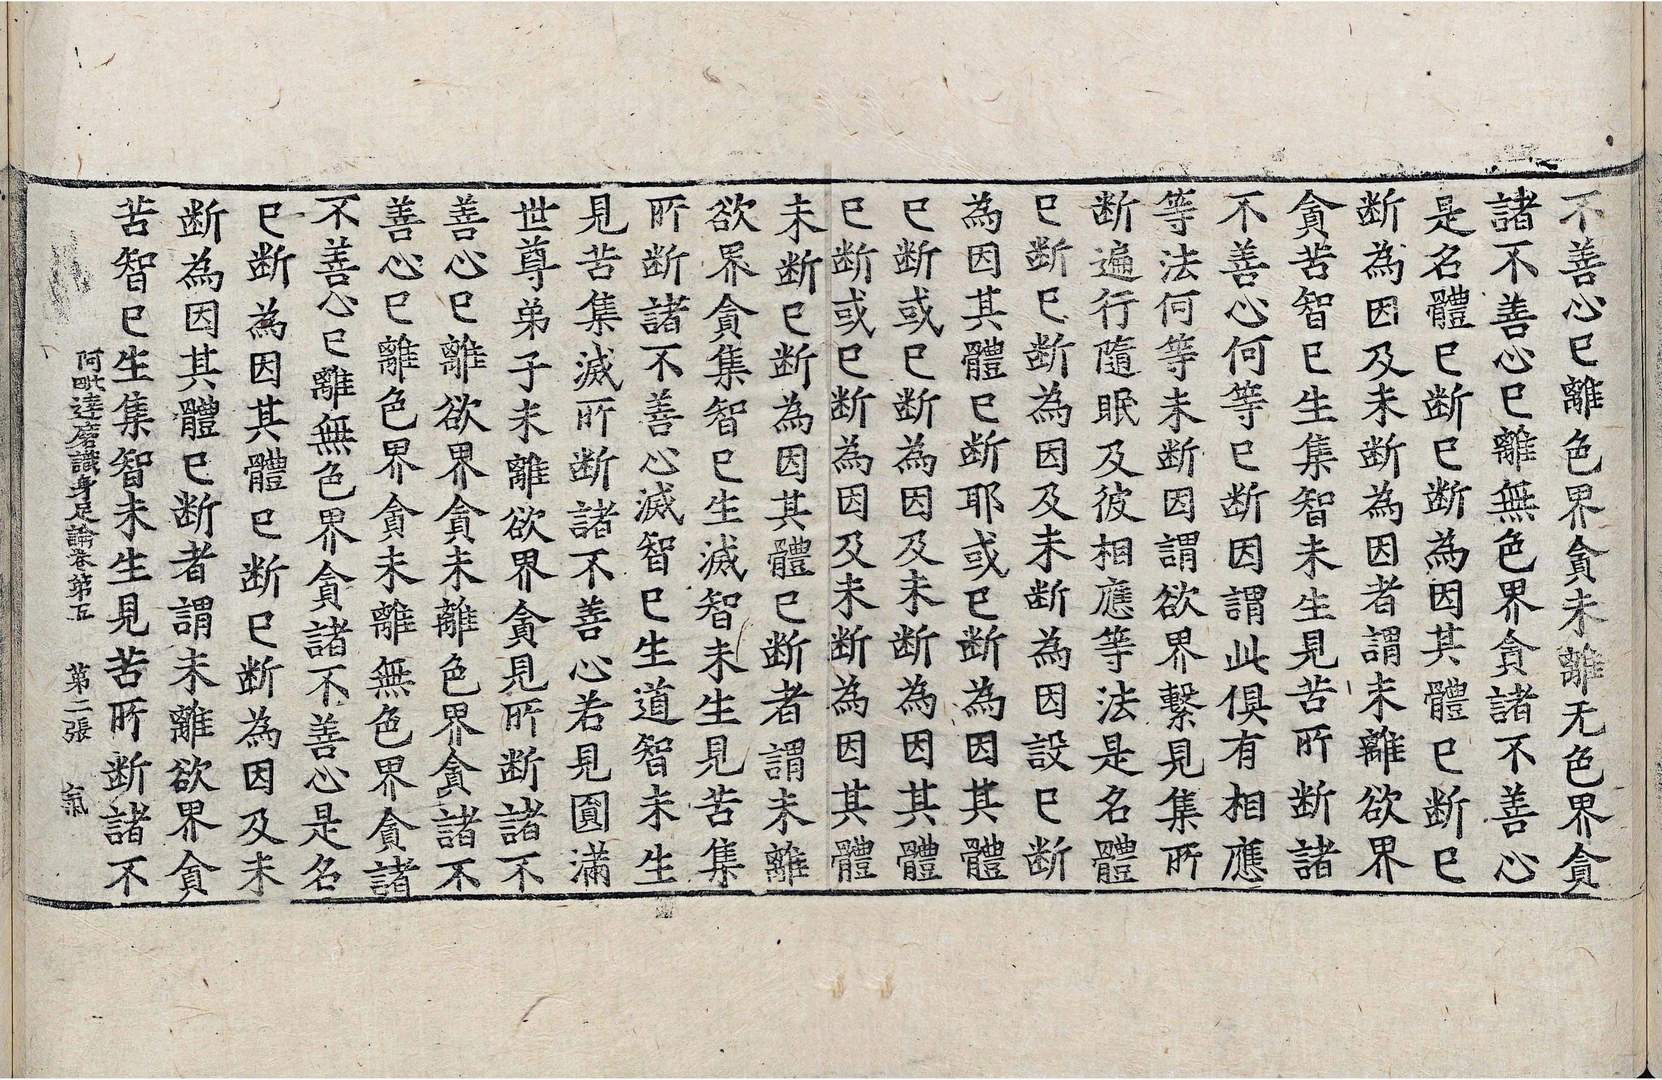 不善心已離色界貪未離无色界貪
諸不善心已離無色界貪諸不善心
是名體已断已断為因其體已断已
断為因及未断為因者謂未離欲界
貪苦智已生集智未生見苦所断諸
不善心何等已断因謂此俱有相應
等法何等未断因謂欲界繫見集所
断遍行隨眠及彼相應等法是名體
已断已断為因及未断為因設已断
為因其體已断耶或已断為因其體
已断或已断為因及未断為因其體
已断或已断為因及未断為因其體
未断已断為因其體已断者謂未離
欲界貪集智已生滅智未生見苦集
所断諸不善心滅智已生道智未生
見苦集滅所断諸不善心若見圓滿
世尊弟子未離欲界貪見所断諸不
善心已離欲界貪未離色界貪諸不
善心已離色界貪未離無色界貪諸
不善心已離無色界貪諸不善心是名
已断為因其體已断已断為因及未
断為因其體已断者謂未離欲界貪
苦智已生集智未生見苦所断諸不
阿毗達磨識身足論卷第五 第二張 氣